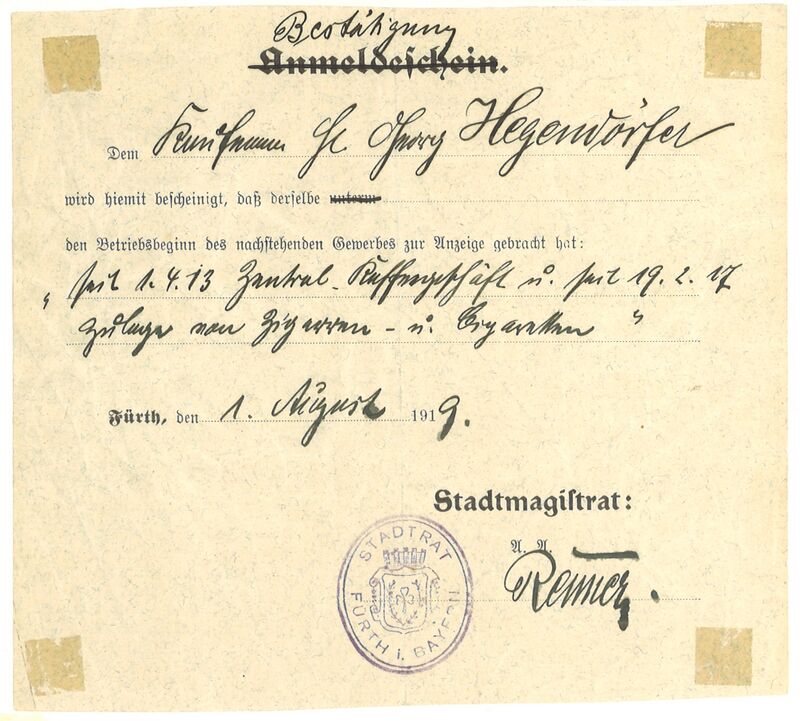 Bestätigung
Anmeldeschein.
Dem Kaufmann H. Georg Hegendörfer
wird hiemit bescheinigt, daß derselbe unterm
den Betriebsbeginn des nachstehenden Gewerbes zur Anzeige gebracht hat:
„seit 1.4.13 Zentral-Kaffeegeschäft u. seit 19.2.17
Zulage von Zigarren- u. Cigaretten“
Fürth, den 1. August 1919.
Stadtmagistrat:
A. A.
Renner.
STADTRAT
FÜRTH i. BAYERN